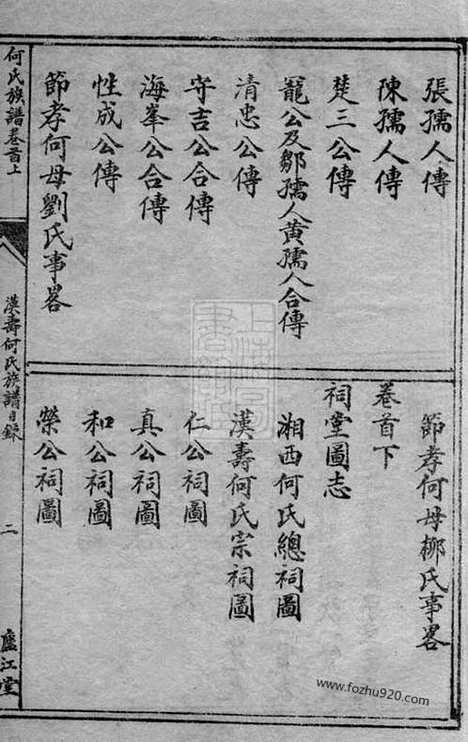 張孺人傳
陳孺人傳
楚三公傳
龍公及鄒孺人黄孺人合傳
清忠公傳
守吉公合傳
海峯公合傳
性成公傳
節孝何母劉氏事畧
節孝何母柳氏事畧
卷首下
祠堂圖志
湘西何氏總祠圖
漢壽何氏宗祠圖
仁公祠圖
真公祠圖
和公祠圖
榮公祠圖
何氏族譜卷首上
漢壽何氏族譜目錄
二
廬江堂
www.fozhu920.com